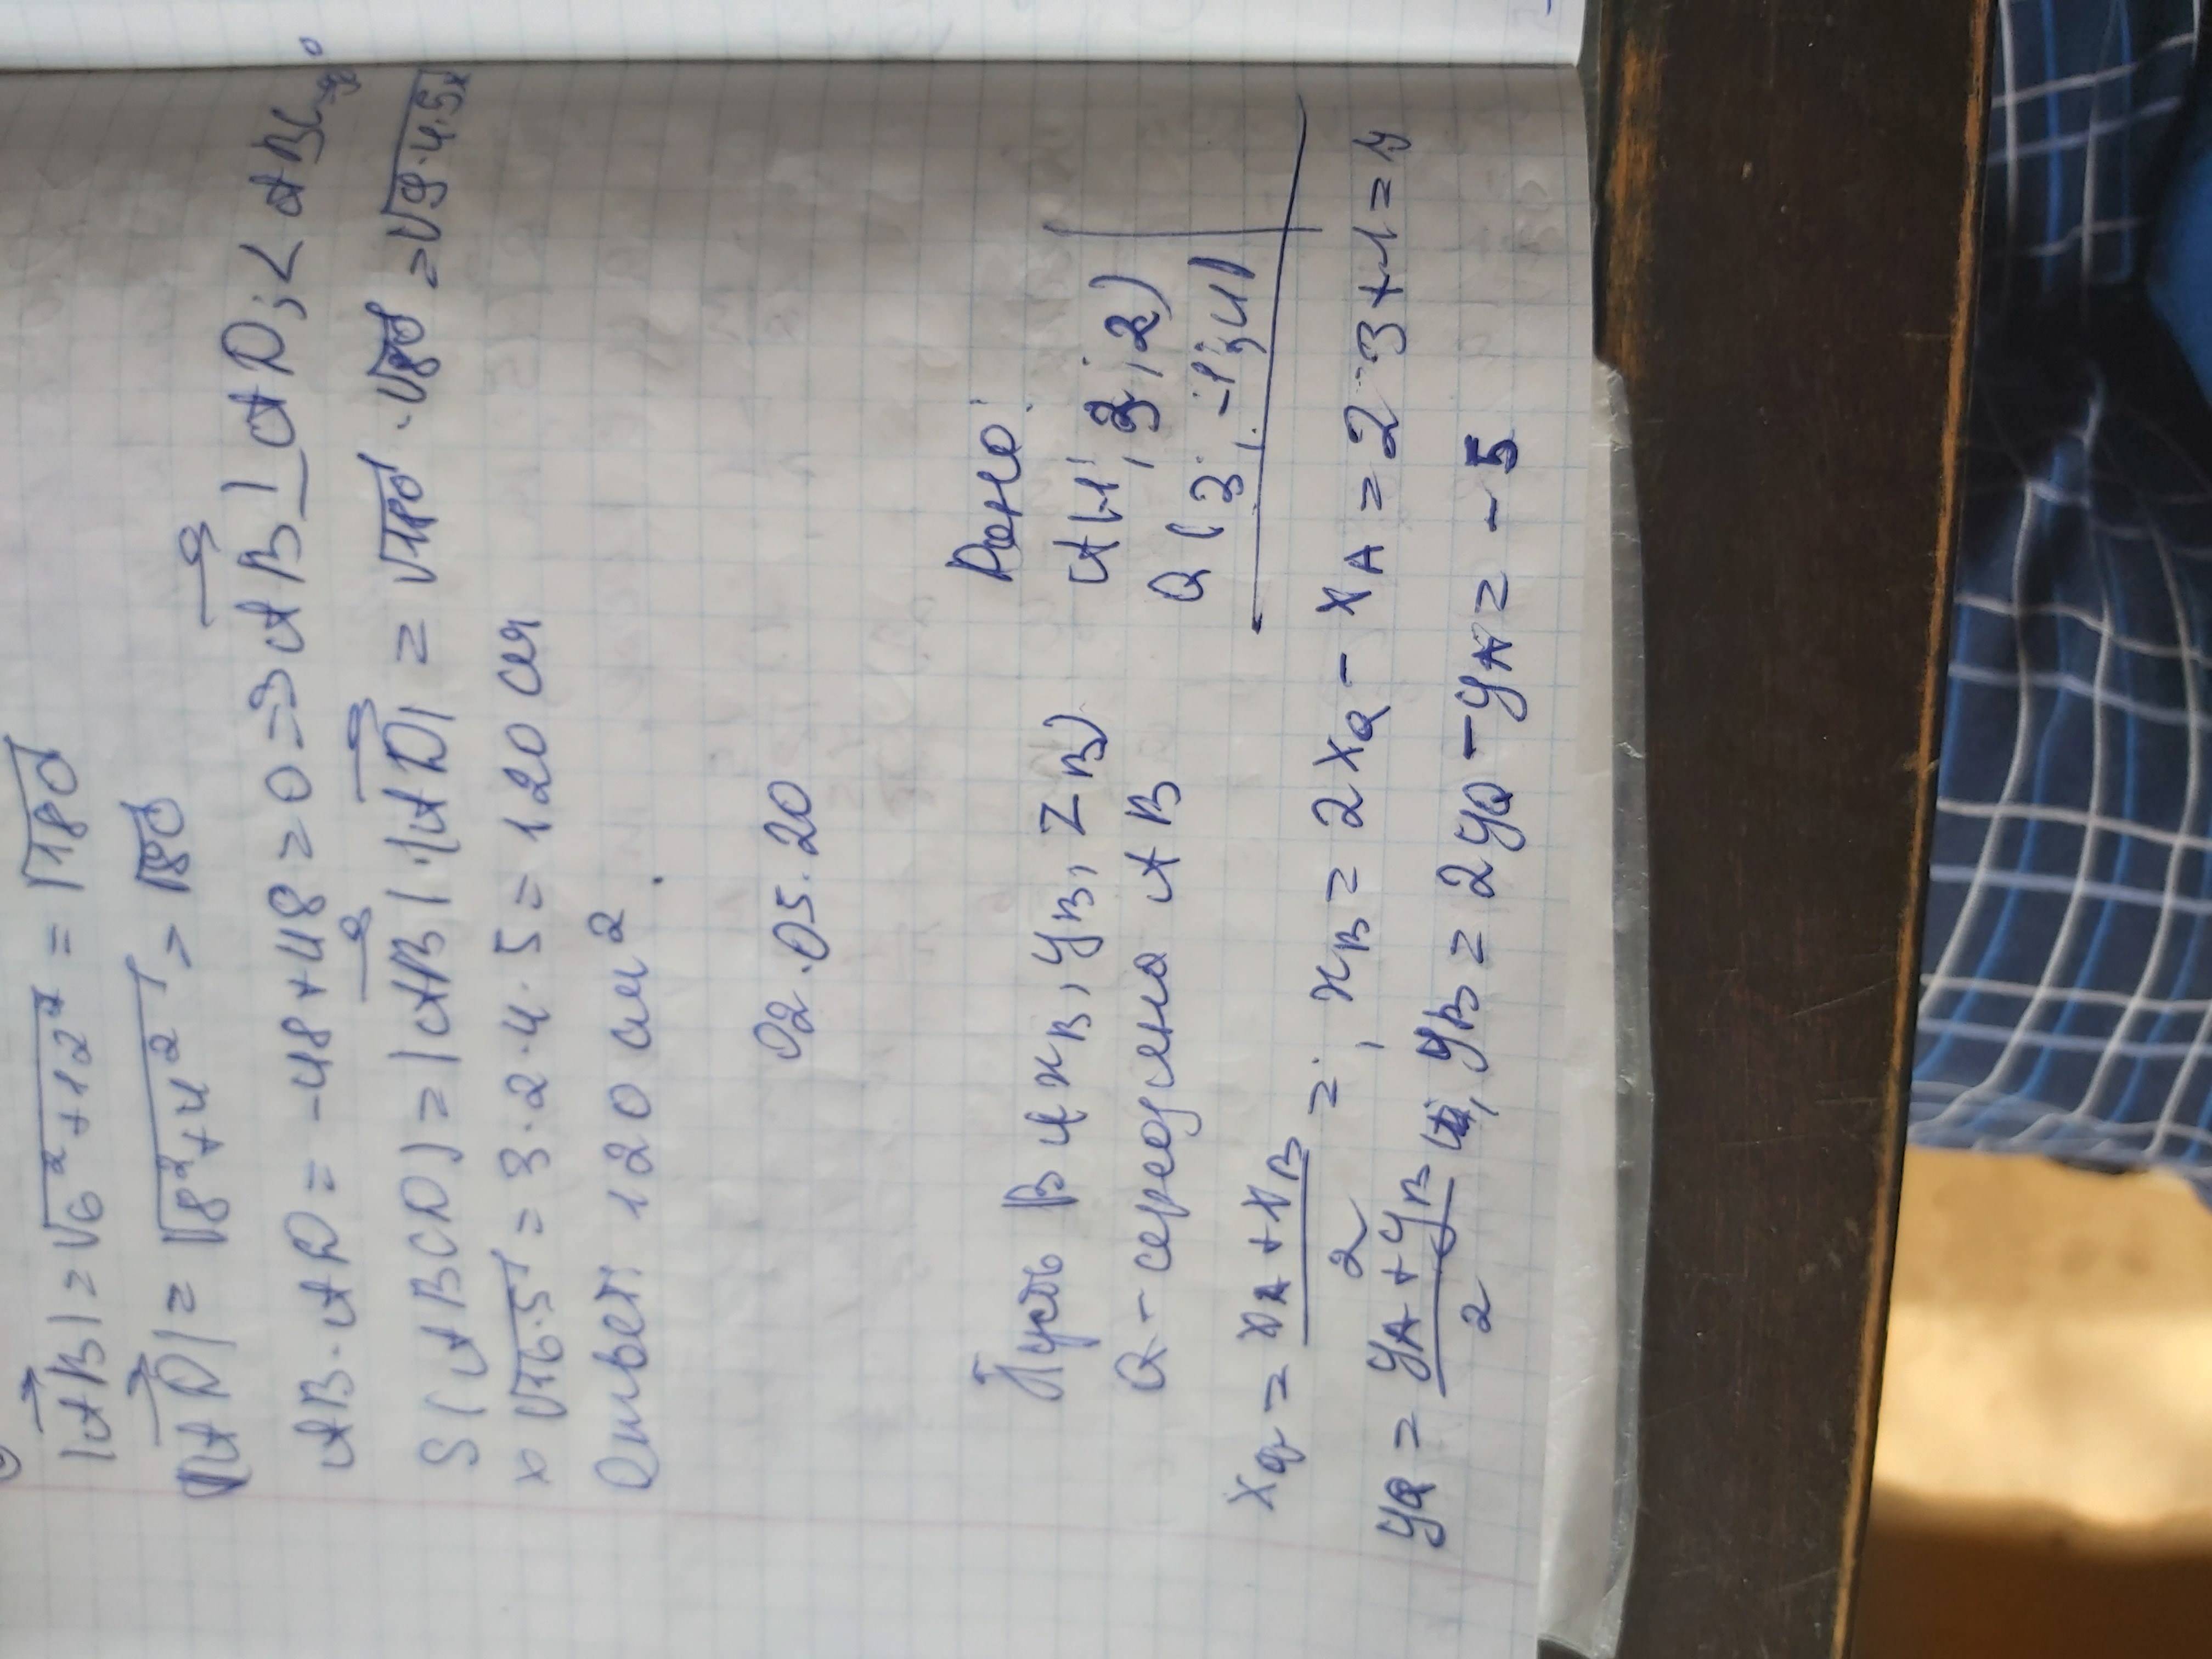 |AB| = √6² + 12² = √180
|AD| = √8² + 4² = √80
AB · AD = -48 + 48 = 0 => AB ⊥ AD; ∠ ABC = 90°
S(ABCD) = |AB| · |AD| = √180 · √80 = √9·4·5 ×
× √16·5 = 3·2·4·5 = 120 см
Ответ: 120 см²
02.05.20
Дано:
Пусть B (xB, yB, zB)
A(-1; 3; 2)
Q - середина AB
Q (3; -1; 4)
xQ = xA + xB / 2 = ; xB = 2xQ - xA = 2·3+1 = 7
yQ = yA + yB / 2 ; yB = 2yQ - yA = -5